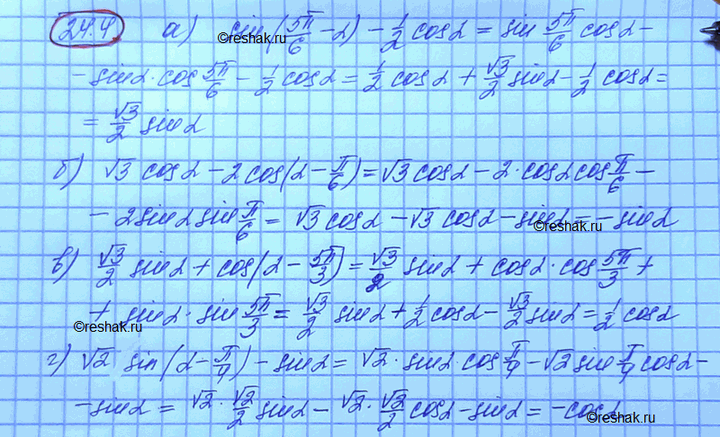 24.4 а) sin(5π/6 - α) - 1/2 cosα = sin 5π/6 cosα -
©reshak.ru
- sinα · cos 5π/6 - 1/2 cosα = 1/2 cosα + √3/2 sinα - 1/2 cosα =
= √3/2 sinα
б) √3 cosα - 2 cos(α - π/6) = √3 cosα - 2 · cosα cos π/6 -
- 2 sinα sin π/6 = √3 cosα - √3 cosα - sinα = - sinα
в) √3/2 sinα + cos(α - 5π/3) = √3/2 sinα + cosα · cos 5π/3 +
+ sinα · sin 5π/3 = √3/2 sinα + 1/2 cosα - √3/2 sinα = 1/2 cosα
©reshak.ru
г) √2 sin(α - π/4) - sinα = √2 · sinα cos π/4 - √2 sin π/4 cosα -
- sinα = √2 · √2/2 sinα - √2 · √2/2 cosα - sinα = - cosα
©reshak.ru